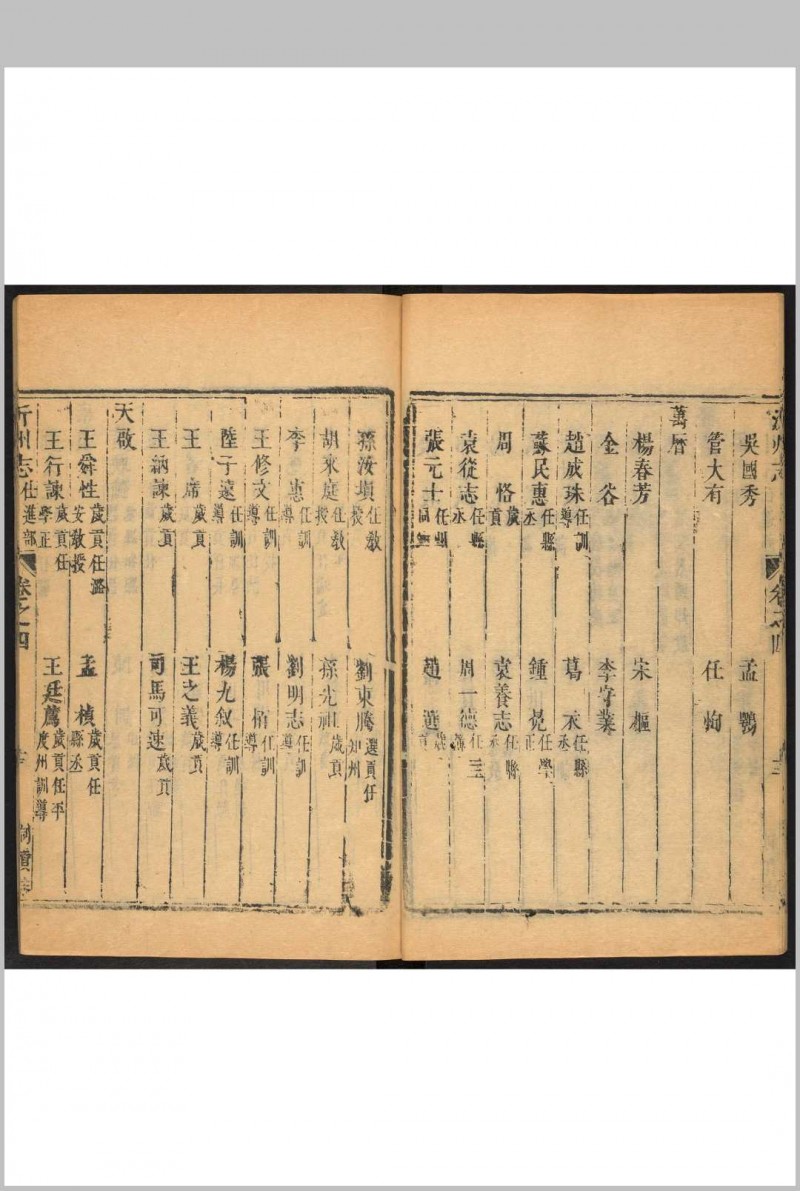 吳國秀 孟鸚
管大有 任恂
萬曆
楊春芳 宋樞
金谷 李守業
趙成珠任訓導 葛永任縣丞
蘇民惠任縣丞 鍾覺任學正
周恪歲貢 袁養志任縣丞
袁從志任縣丞 周一德任
張元士任 趙選歲貢
孫汝塤任教授 劉東騰選貢任知州
胡來庭任教授 孫光祖歲貢
李惠任訓導 劉明志任訓導
王修文任訓導 張栢任訓導
陸子遠任訓導 楊九叙任訓導
王席歲貢 王之義歲貢
王納諫歲貢 司馬可速歲貢
天啟
王舜性歲貢任潞安教授 孟楨歲貢任縣丞
王行諫歲貢任學正 王廷薦歲貢任平度州訓導
沂州志 仕進部 卷之四